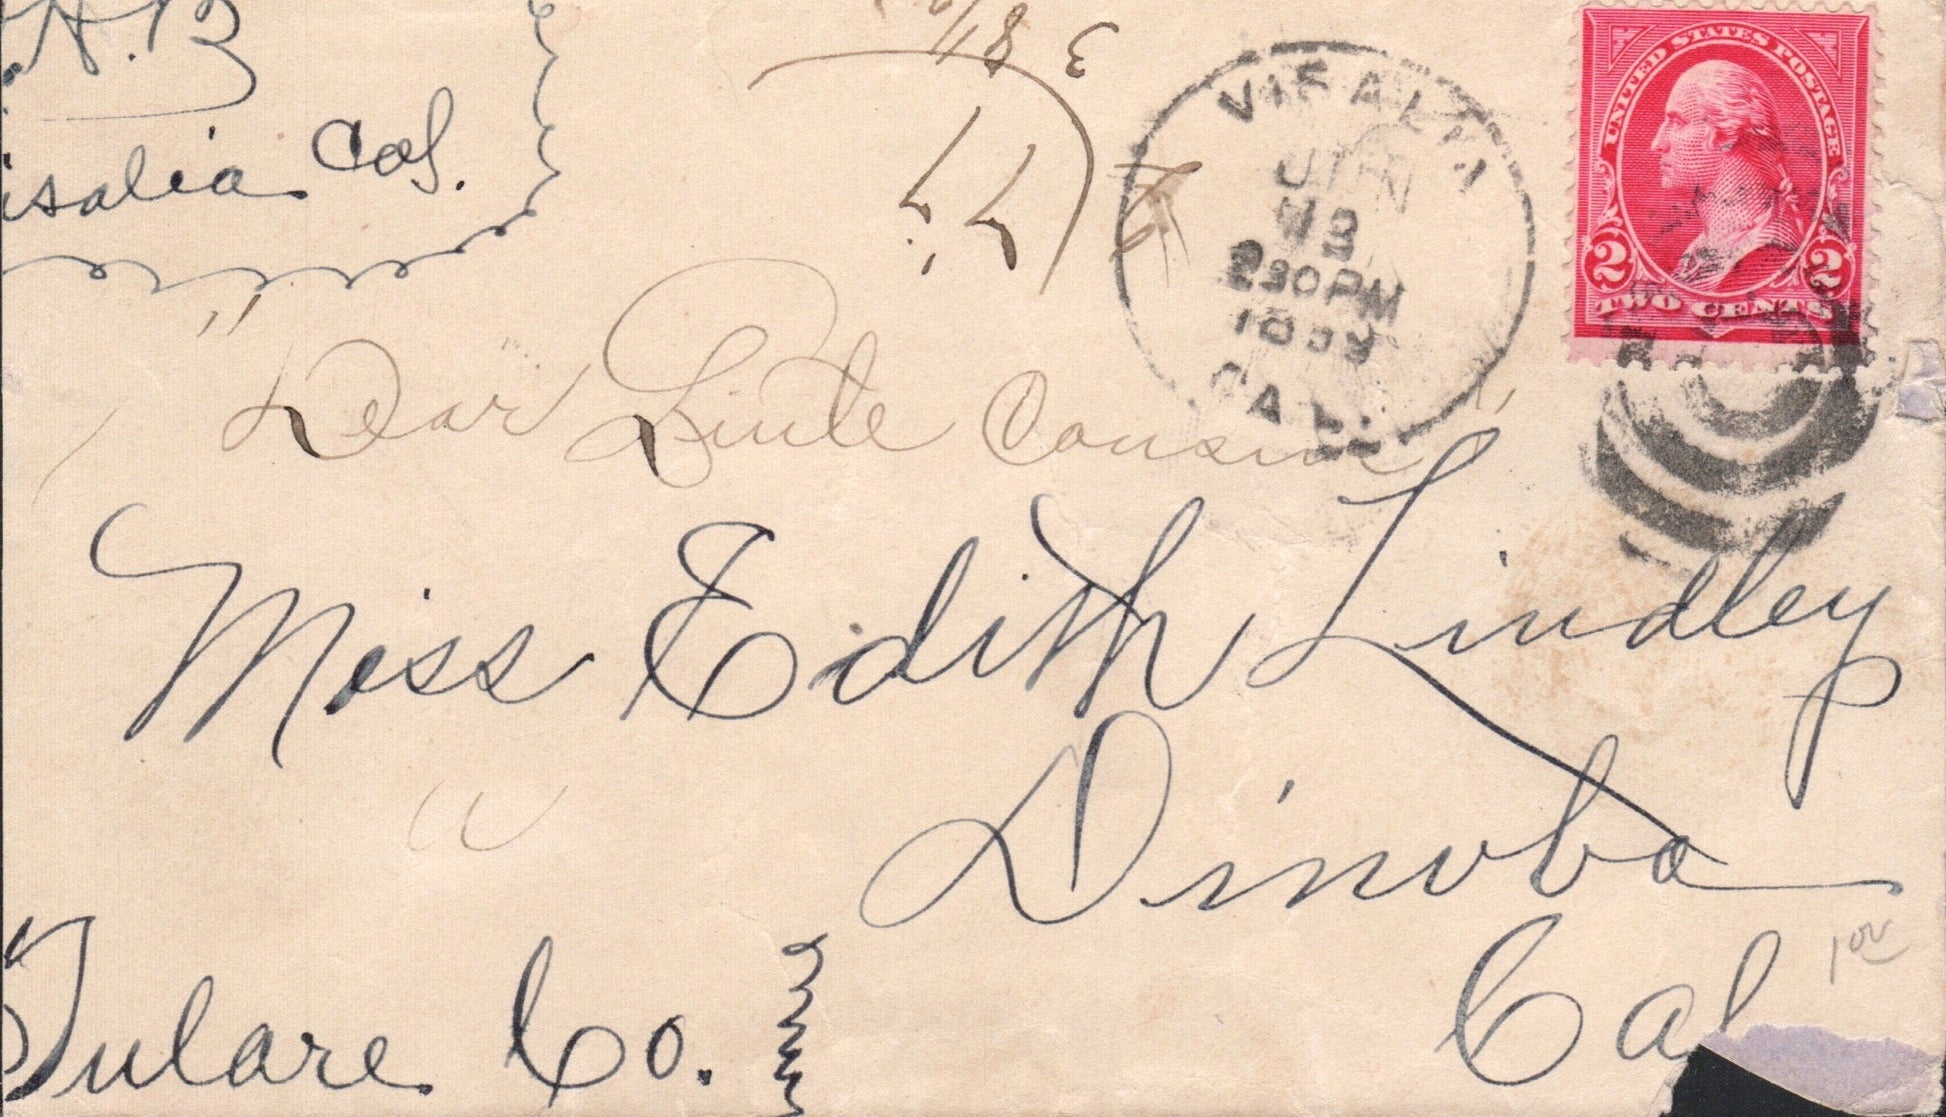 A. B
isalia Cal.
VISALIA
JUN
530 PM
CAL.
UNITED STATES POSTAGE
2 2
TWO CENTS
"Dear Little Cousin"
Miss Edith Lindley
Dinuba
Cal
Tulare Co.